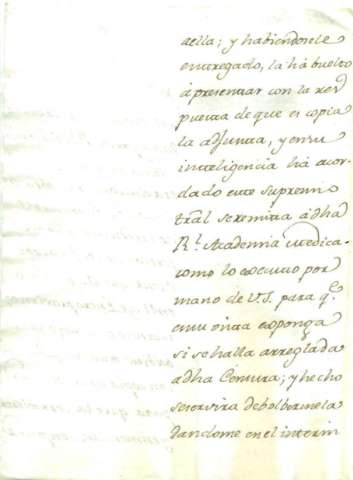 aella; y habiendosele
entregado, la há buelto
á presentar con la res
puesta de que es copia
la adjunta, y en su
inteligencia há acor-
dado este Supremo
tral se remita á dha
Rl. Academia Medica.
como lo executo por
mano de V.S. para q.e
en su vista exponga
si se halla arreglada
adha Censura; y hecho
se servirá debolbermela
dandome en el interin